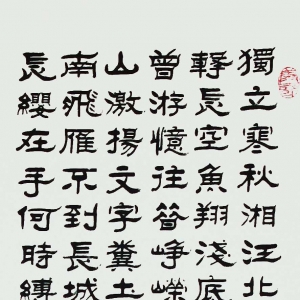 獨立寒秋湘江北
擊長空魚翔淺底
曾游憶往昔崢嶸
山激揚文字糞土
南飛雁不到長城
長纓在手何時縛